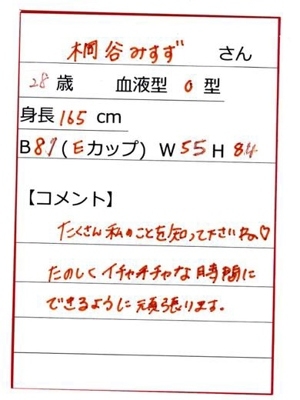 桐谷みすず さん
28歳 血液型 O 型
身長 165 cm
B 87 (Eカップ) W 55 H 84
【コメント】
たくさん私のことを知って下さいね♡
たのしくイチャイチャな時間に
できるように頑張ります。